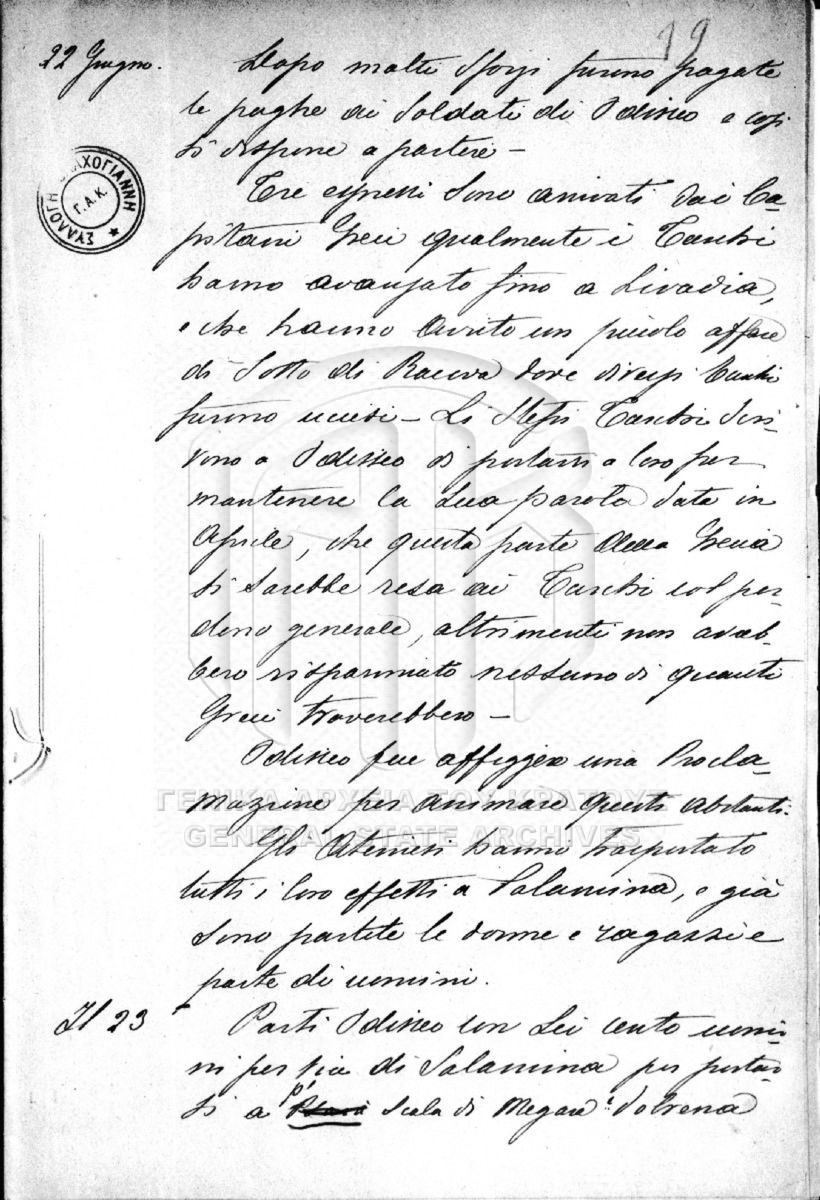 19
22 Giugno. Dopo molti sforzi furono pagate
le paghe ai Soldati di Odisseo e cosi
si dispone a partire –
Tre espressi sono arrivati dai Ca-
pitani Greci qualmente i Turchi
hanno avanzato fino a Livadia,
e che hanno avuto un piccolo affare
di sotto di Racova dove diversi Turchi
furono uccisi – Li Stessi Turchi scri-
vono a Odisseo di portarsi a loro per
mantenere la sua parola data in
Aprile, che questa parte della Grecia
si sarebbe resa ai Turchi col per-
dono generale, altrimenti non avreb-
bero risparmiato nessuno di quanti
Greci troverebbero –
Odisseo fece affiggere una Procla-
mazione per animare questi abitanti.
Gli Ateniesi hanno trasportato
tutti i loro effetti a Salamina, e già
sono partite le donne e ragazzi e
parte di uomini.
Il 23 Parti Odisseo con Sei cento uomi-
ni per via di Salamina per portar-
si a Scala di Megara Dobrena
ΣΥΛΛΟΓΗ ΒΛΑΧΟΓΙΑΝΝΗ
Γ.Α.Κ.
ΓΕΝΙΚΑ ΑΡΧΕΙΑ ΤΟΥ ΚΡΑΤΟΥΣ
GENERAL STATE ARCHIVES